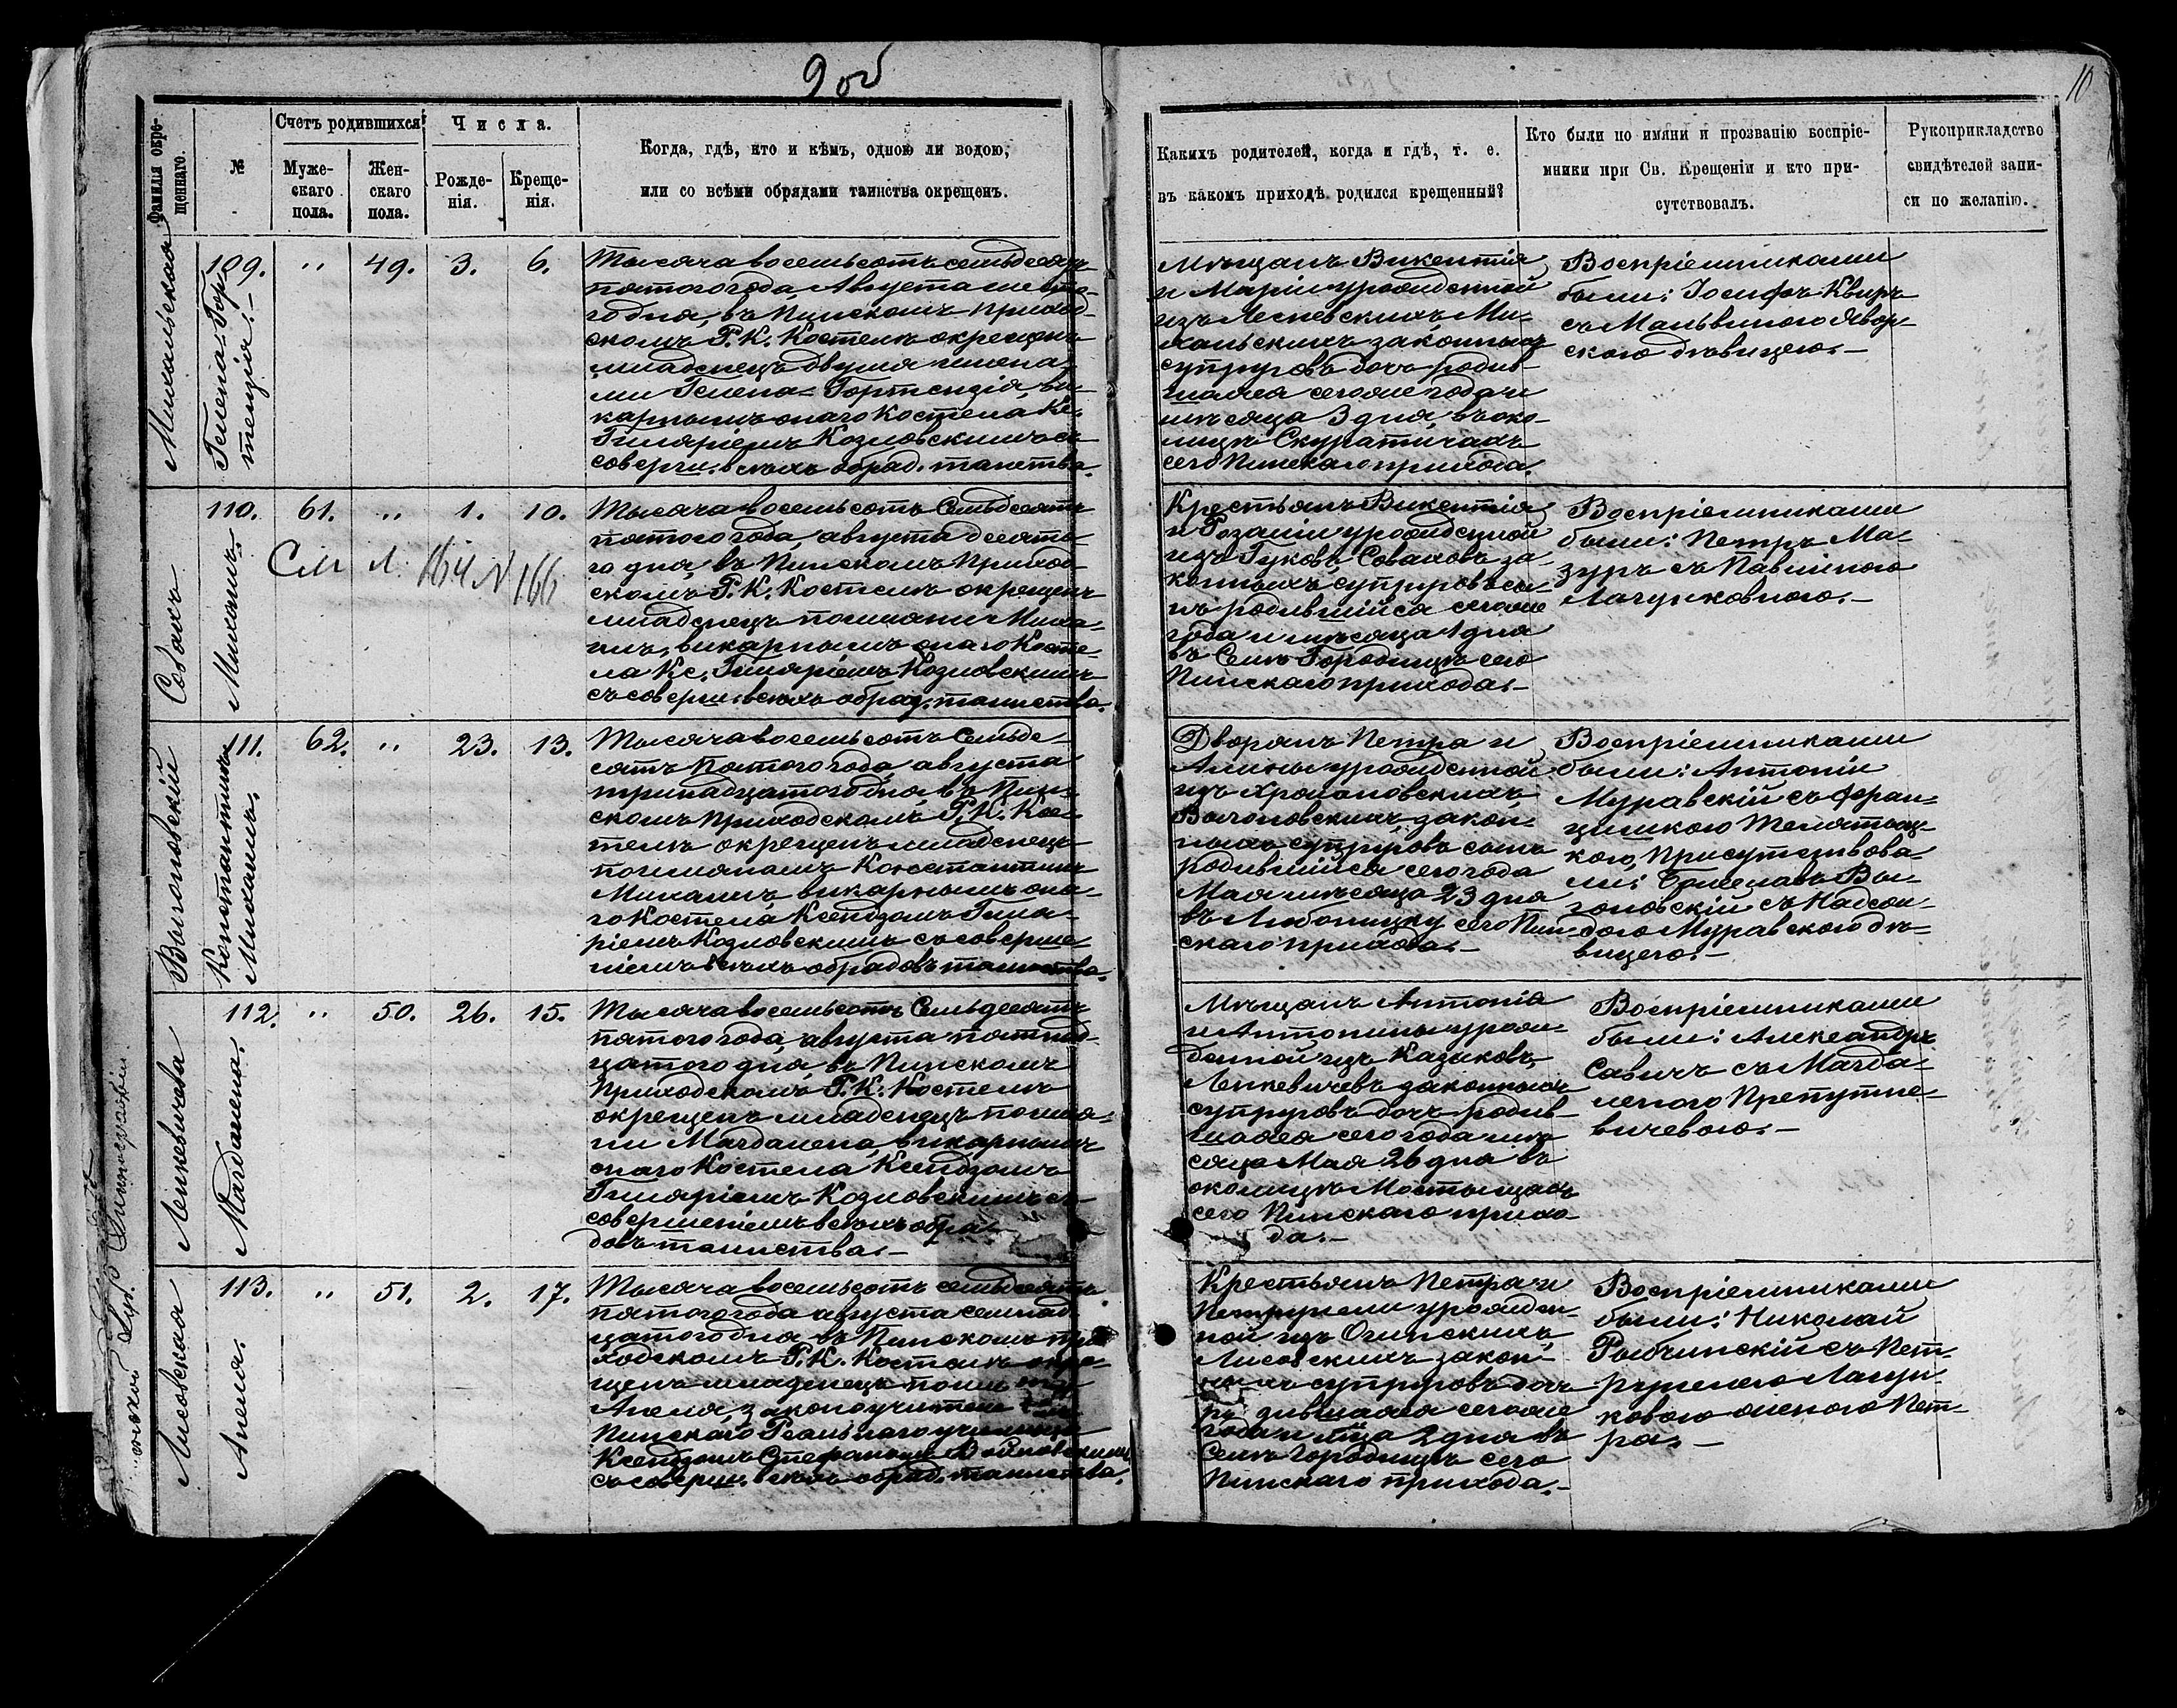 9 об
10
Фамилія окре-
щеннаго.
№
Счетъ родившихся
Муже-
скаго
пола.
Жен-
скаго
пола.
Числа.
Рожде-
нія.
Креще-
нія.
Когда, гдѣ, кто и кѣмъ, одною ли водою,
или со всѣми обрядами таинства окрещенъ.
Какихъ родителей, когда и гдѣ, т. е.
въ какомъ приходѣ родился крещенный?
Кто были по имяни и прозванію воспріе-
мники при Св. Крещеніи и кто при-
сутствовалъ.
Рукоприкладство
свидѣтелей запи-
си по желанію.
Михальская
109.
Гелена-Гор-
тензія.-
" 49. 3. 6.
Тысяча восемьсотъ семьдесятъ
пятого года Августа шесто-
го дня, въ Пинскомъ приход-
скомъ Р. К. Костелѣ окрещенъ
младенецъ двумя имена-
ми Гелена-Гортензія, ви-
карнымъ онаго Костела Кс.
Гиляріемъ Козловскимъ съ
соверш. всѣхъ обряд. таинства.
Мѣщанъ Викентія
и Маріи урожденной
изъ Лесневскихъ Ми-
хальскихъ законныхъ
супруговъ дочь родив-
шаяся сего же года и
мѣсяца 3 дня, въ око-
лицѣ Скуратичахъ
сего Пинскаго прихода.
Воспріемниками
были: Іосифъ Квиръ
съ Мальвиною Явор-
скою дѣвицею.-
Совахъ
110.
Михаилъ.
61. " 1. 10.
См л. 164 N 166
Тысяча восемьсотъ Семьдесятъ
пятого года, августа десято-
го дня, въ Пинскомъ Приход-
скомъ Р. К. Костелѣ окрещенъ
младенецъ по имени Миха-
илъ, викарнымъ онаго Косте-
ла Кс. Гиляріемъ Козловскимъ
съ соверш. всѣхъ обряд. таинства.
Крестьянъ Викентія
и Розаліи урожденной
изъ Гуковъ, Соваховъ за-
конныхъ супруговъ сы-
нъ родившійся сего же
года и мѣсяца 1 дня
въ Селѣ Городищѣ сего
Пинскаго прихода.-
Воспріемниками
были: Петръ Ма-
зуръ съ Павлиною
Лагунковною.-
Выгоновскій
111.
Константинъ
Михаилъ.
62. " 23. 13.
Тысяча восемьсотъ Семьде-
сятъ Пятого года, августа
тринадцатого дня, въ Пин-
скомъ Приходскомъ Р. К. Кос-
телѣ окрещенъ младенецъ
по именамъ Константинъ
Михаилъ, викарнымъ она-
го Костела Ксендзомъ Гиля-
ріемъ Козловскимъ съ соверше-
ніемъ всѣхъ обрядовъ таинства.
Дворянъ Петра и
Алины урожденной
изъ Храповскихъ,
Выгоновскихъ, закон-
ныхъ супруговъ сынъ
родившійся сего года
Мая мѣсяца 23 дня
въ Любашицку сего Пин-
скаго прихода.-
Воспріемниками
были: Антоній
Муравскій съ Фран-
цишкою Телятыц-
кою, Присутствова-
ли: Болеславъ Вы-
гоновскій съ Надеж-
дою Муравскою дѣ-
вицею.-
Ленкевичова
112.
Магдалена.
" 50. 26. 15.
Тысяча восемьсотъ Семьдесятъ
пятого года, августа пятнад-
цатого дня, въ Пинскомъ
Приходскомъ Р. К. Костелѣ
окрещенъ младенецъ по име-
ни Магдалена, викарнымъ
онаго Костела Ксендзомъ
Гиляріемъ Козловскимъ съ
совершеніемъ всѣхъ обря-
довъ таинства.-
Мѣщанъ Антонія
и Антонины урож-
денной изъ Казаковъ,
Ленкевичевъ законныхъ
супруговъ дочь родив-
шаяся сего года мѣ-
сяца Мая 26 дня въ
околицѣ Мостыщахъ
сего Пинскаго прихо-
да.-
Воспріемниками
были: Александръ
Савичъ съ Магда-
леною Препутне-
вичевою.-
Лисовская
113.
Анеля.
" 51. 2. 17.
Тысяча восемьсотъ семьдесятъ
пятого года августа семнад-
цатого дня, въ Пинскомъ при-
ходскомъ Р. К. Костелѣ окре-
щенъ младенецъ по имени
Анеля, законоучителемъ
Пинскаго Реальнаго училища
Ксендзомъ Стефаномъ Войновскимъ
съ соверш. всѣхъ обряд. таинства.
Крестьянъ Петра и
Петрунели урожден-
ной изъ Огинскихъ,
Лисовскихъ закон-
ныхъ супруговъ дочь
родившаяся сего же
года и м-ца 2 дня въ
Селѣ Городищѣ сего
Пинскаго прихода.-
Воспріемниками
были: Николай
Рыбчинскій съ Пет-
рунелею Лагун-
ковою женою Пет-
ра.-